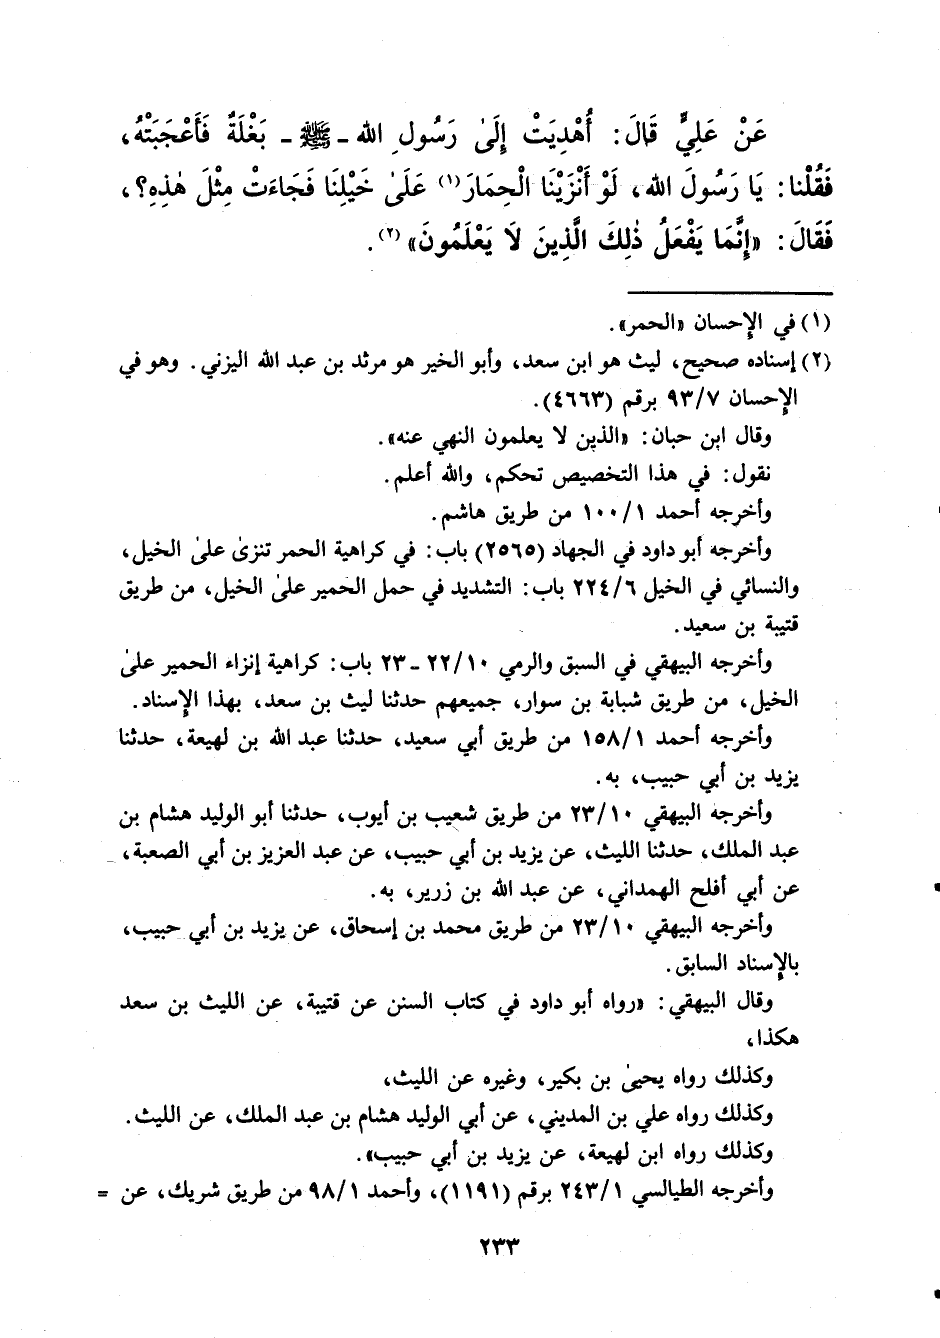 عَنْ عَلِيٍّ قَالَ: أُهْدِيَتْ إِلَىٰ رَسُولِ الله ـ ﷺ ـ بَغْلَةٌ فَأَعْجَبَتْهُ،
فَقُلْنا: يَا رَسُولَ الله، لَوْ أَنْزَيْنَا الْحِمَارَ(١) عَلَىٰ خَيْلِنَا فَجَاءَتْ مِثْلَ هٰذِهِ؟،
فَقَالَ: «إِنَّمَا يَفْعَلُ ذٰلِكَ الَّذِينَ لَا يَعْلَمُونَ»(٢).
(١) في الإحسان «الحمر».
(٢) إسناده صحيح، ليث هو ابن سعد، وأبو الخير هو مرثد بن عبد الله اليزني. وهو في
الإحسان ٩٣/٧ برقم (٤٦٦٣).
وقال ابن حبان: «الذين لا يعلمون النهي عنه».
نقول: في هذا التخصيص تحكم، والله أعلم.
وأخرجه أحمد ١٠٠/١ من طريق هاشم.
وأخرجه أبو داود في الجهاد (٢٥٦٥) باب: في كراهية الحمر تنزىٰ علىٰ الخيل،
والنسائي في الخيل ٢٢٤/٦ باب: التشديد في حمل الحمير علىٰ الخيل، من طريق
قتيبة بن سعيد.
وأخرجه البيهقي في السبق والرمي ٢٢/١٠ ـ ٢٣ باب: كراهية إنزاء الحمير علىٰ
الخيل، من طريق شبابة بن سوار، جميعهم حدثنا ليث بن سعد، بهذا الإسناد.
وأخرجه أحمد ١٥٨/١ من طريق أبي سعيد، حدثنا عبد الله بن لهيعة، حدثنا
يزيد بن أبي حبيب، به.
وأخرجه البيهقي ٢٣/١٠ من طريق شعيب بن أيوب، حدثنا أبو الوليد هشام بن
عبد الملك، حدثنا الليث، عن يزيد بن أبي حبيب، عن عبد العزيز بن أبي الصعبة،
عن أبي أفلح الهمداني، عن عبد الله بن زرير، به.
وأخرجه البيهقي ٢٣/١٠ من طريق محمد بن إسحاق، عن يزيد بن أبي حبيب،
بالإسناد السابق.
وقال البيهقي: «رواه أبو داود في كتاب السنن عن قتيبة، عن الليث بن سعد
هكذا،
وكذلك رواه يحيىٰ بن بكير، وغيره عن الليث،
وكذلك رواه علي بن المديني، عن أبي الوليد هشام بن عبد الملك، عن الليث.
وكذلك رواه ابن لهيعة، عن يزيد بن أبي حبيب».
وأخرجه الطيالسي ٢٤٣/١ برقم (١١٩١)، وأحمد ٩٨/١ من طريق شريك، عن =
٢٣٣